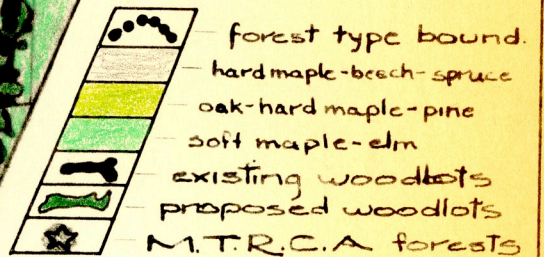 forest type bound.
hard maple-beech-spruce
oak-hard maple-pine
soft maple-elm
existing woodlots
proposed woodlots
M.T.R.C.A forests